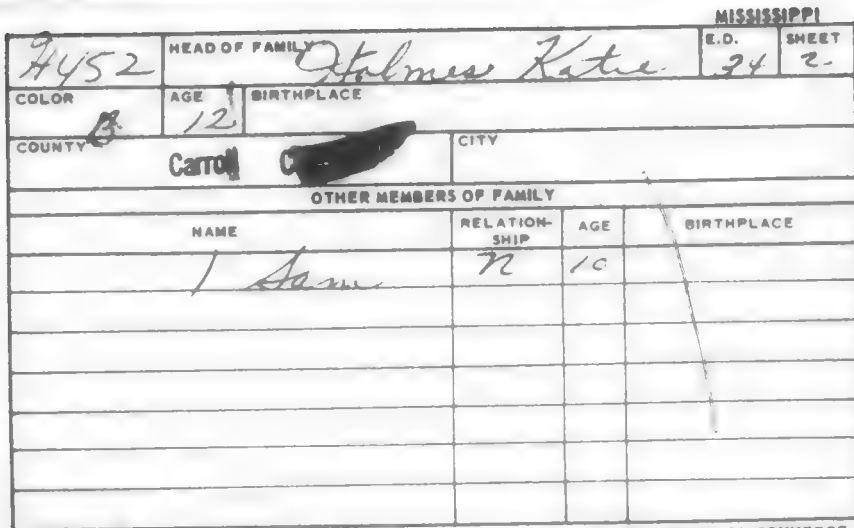 MISSISSIPPI
H452 HEAD OF FAMILY Holmes Katie E.D. 34 SHEET 2
COLOR B AGE 12 BIRTHPLACE
COUNTY Carroll CITY
OTHER MEMBERS OF FAMILY
NAME RELATION-SHIP AGE BIRTHPLACE
1 Sam N 10